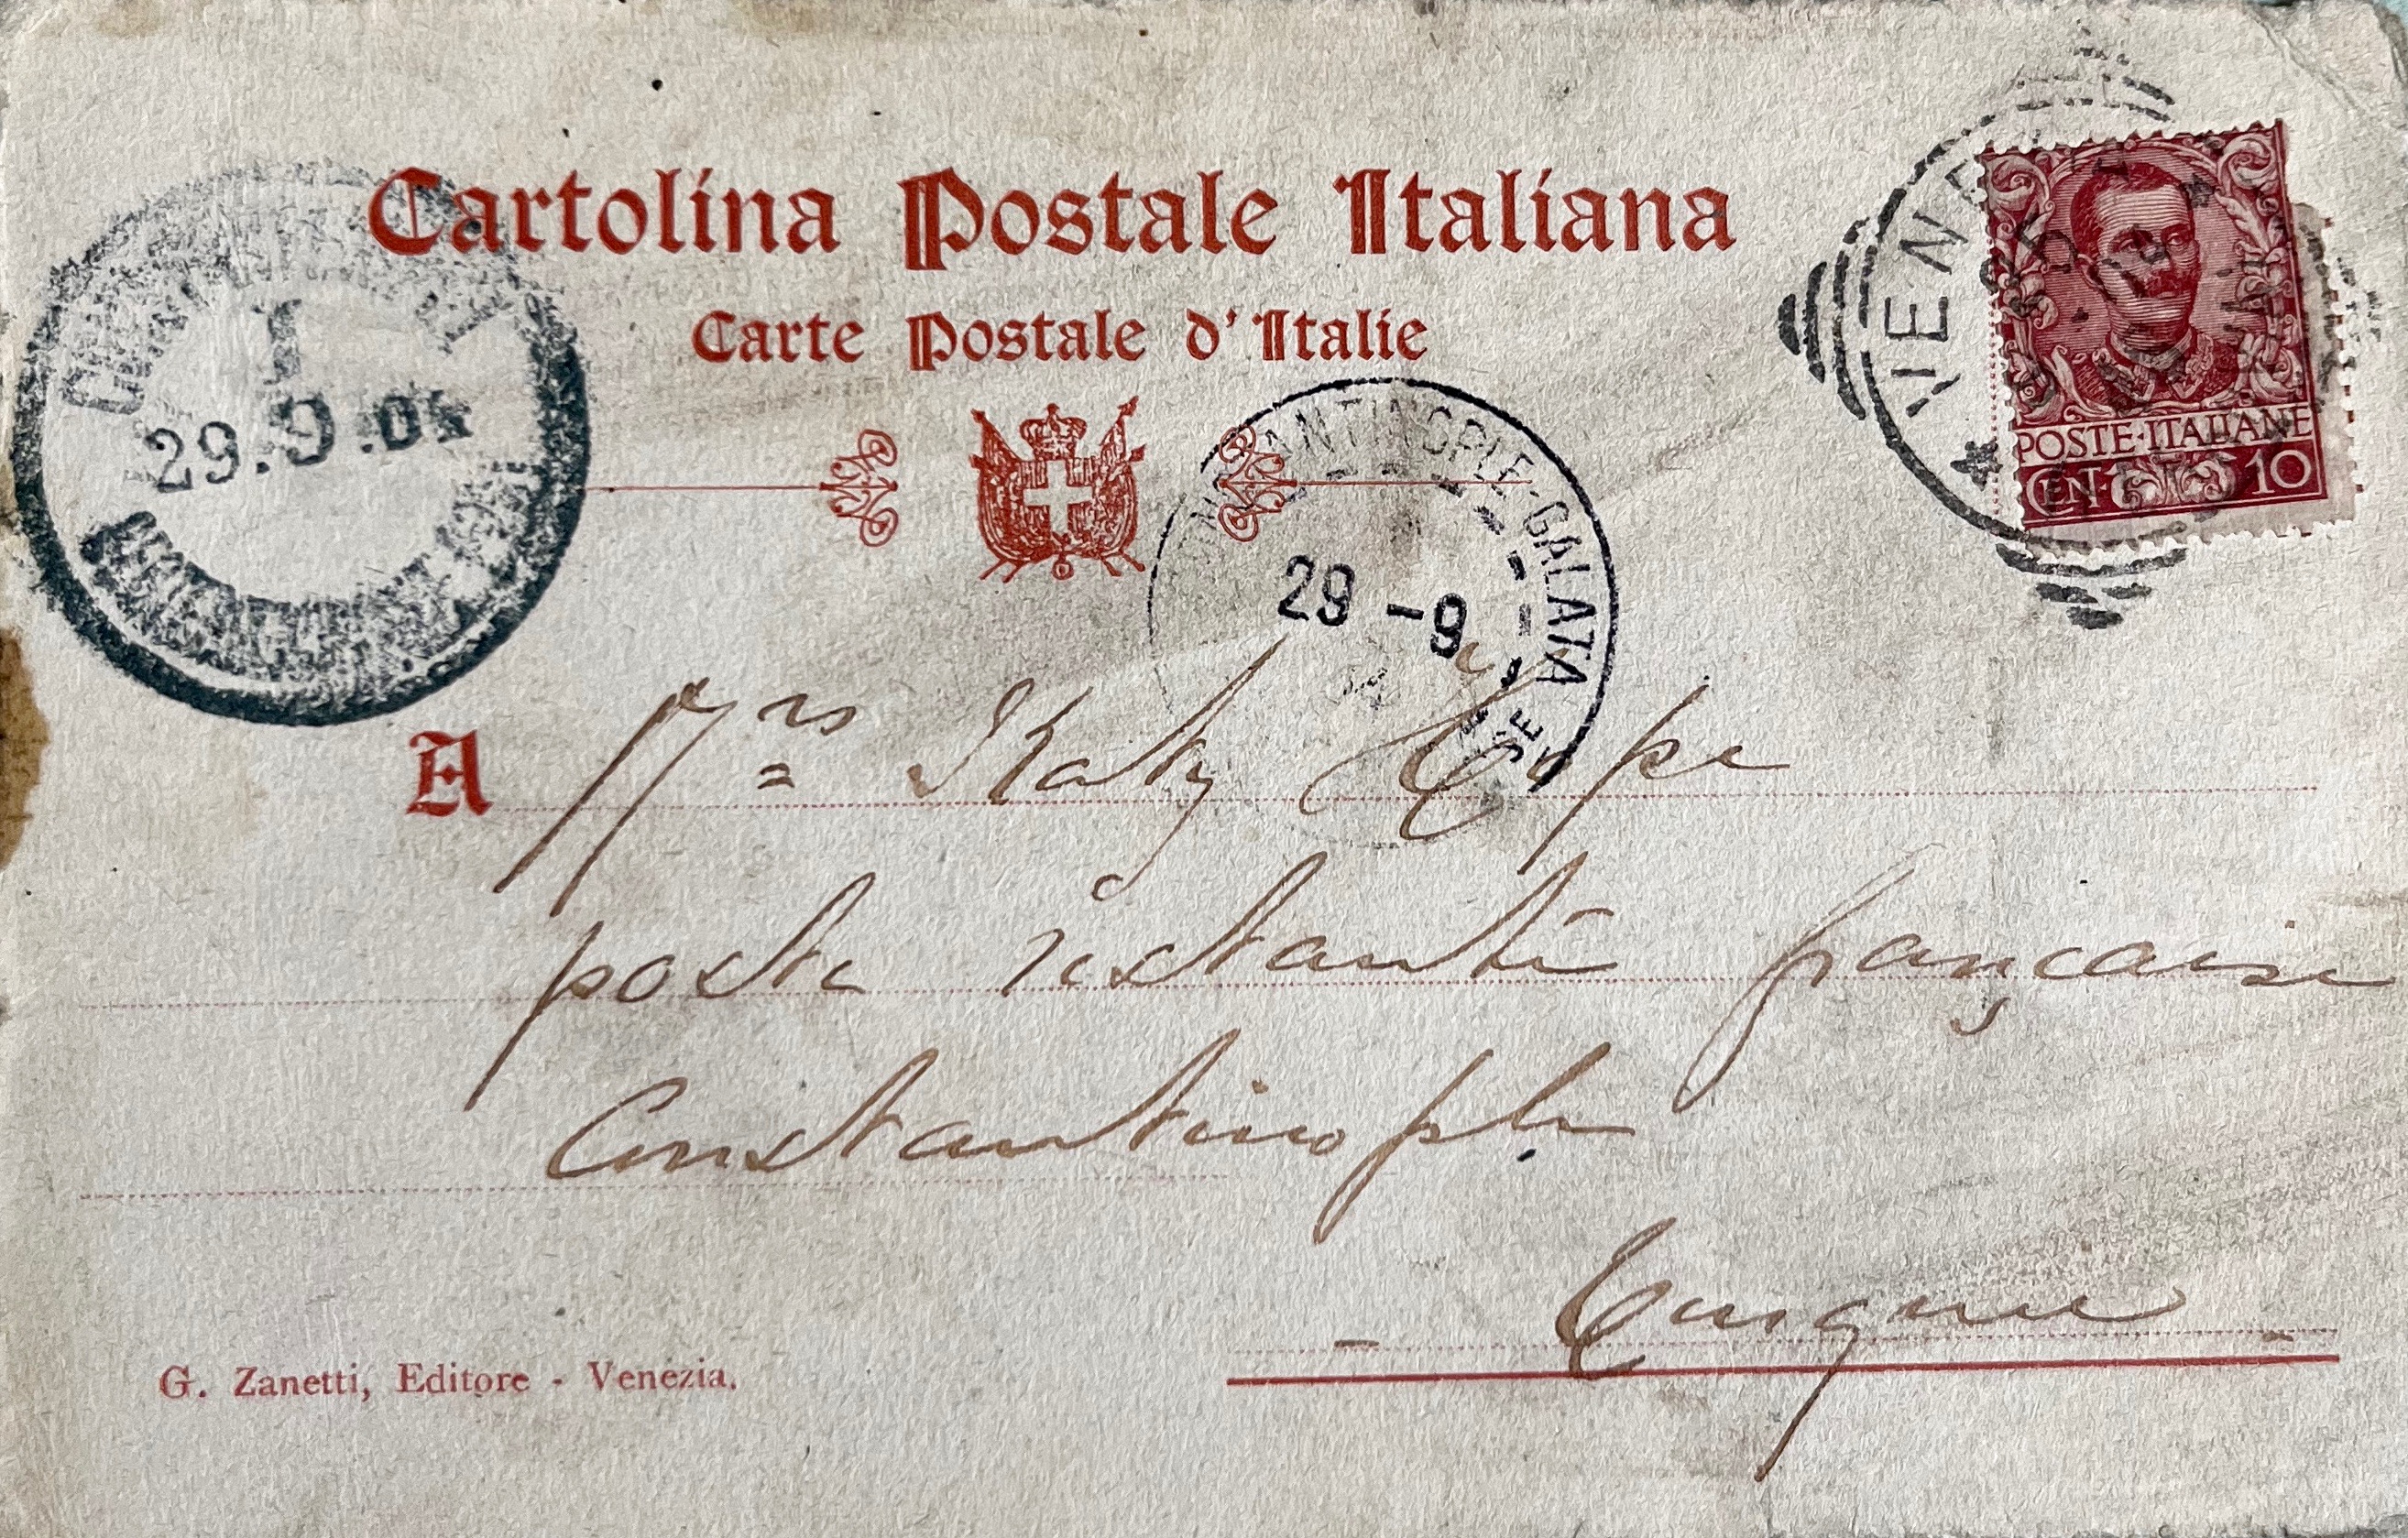 Cartolina Postale Italiana
Carte Postale d'Italie
29.9.04
CONSTANTINOPLE-GALATA
29 -9
POSTE·ITALIANE
CEN· 10
A Mrs Katy
poste restante française
Constantinople
Turquie
G. Zanetti, Editore - Venezia.